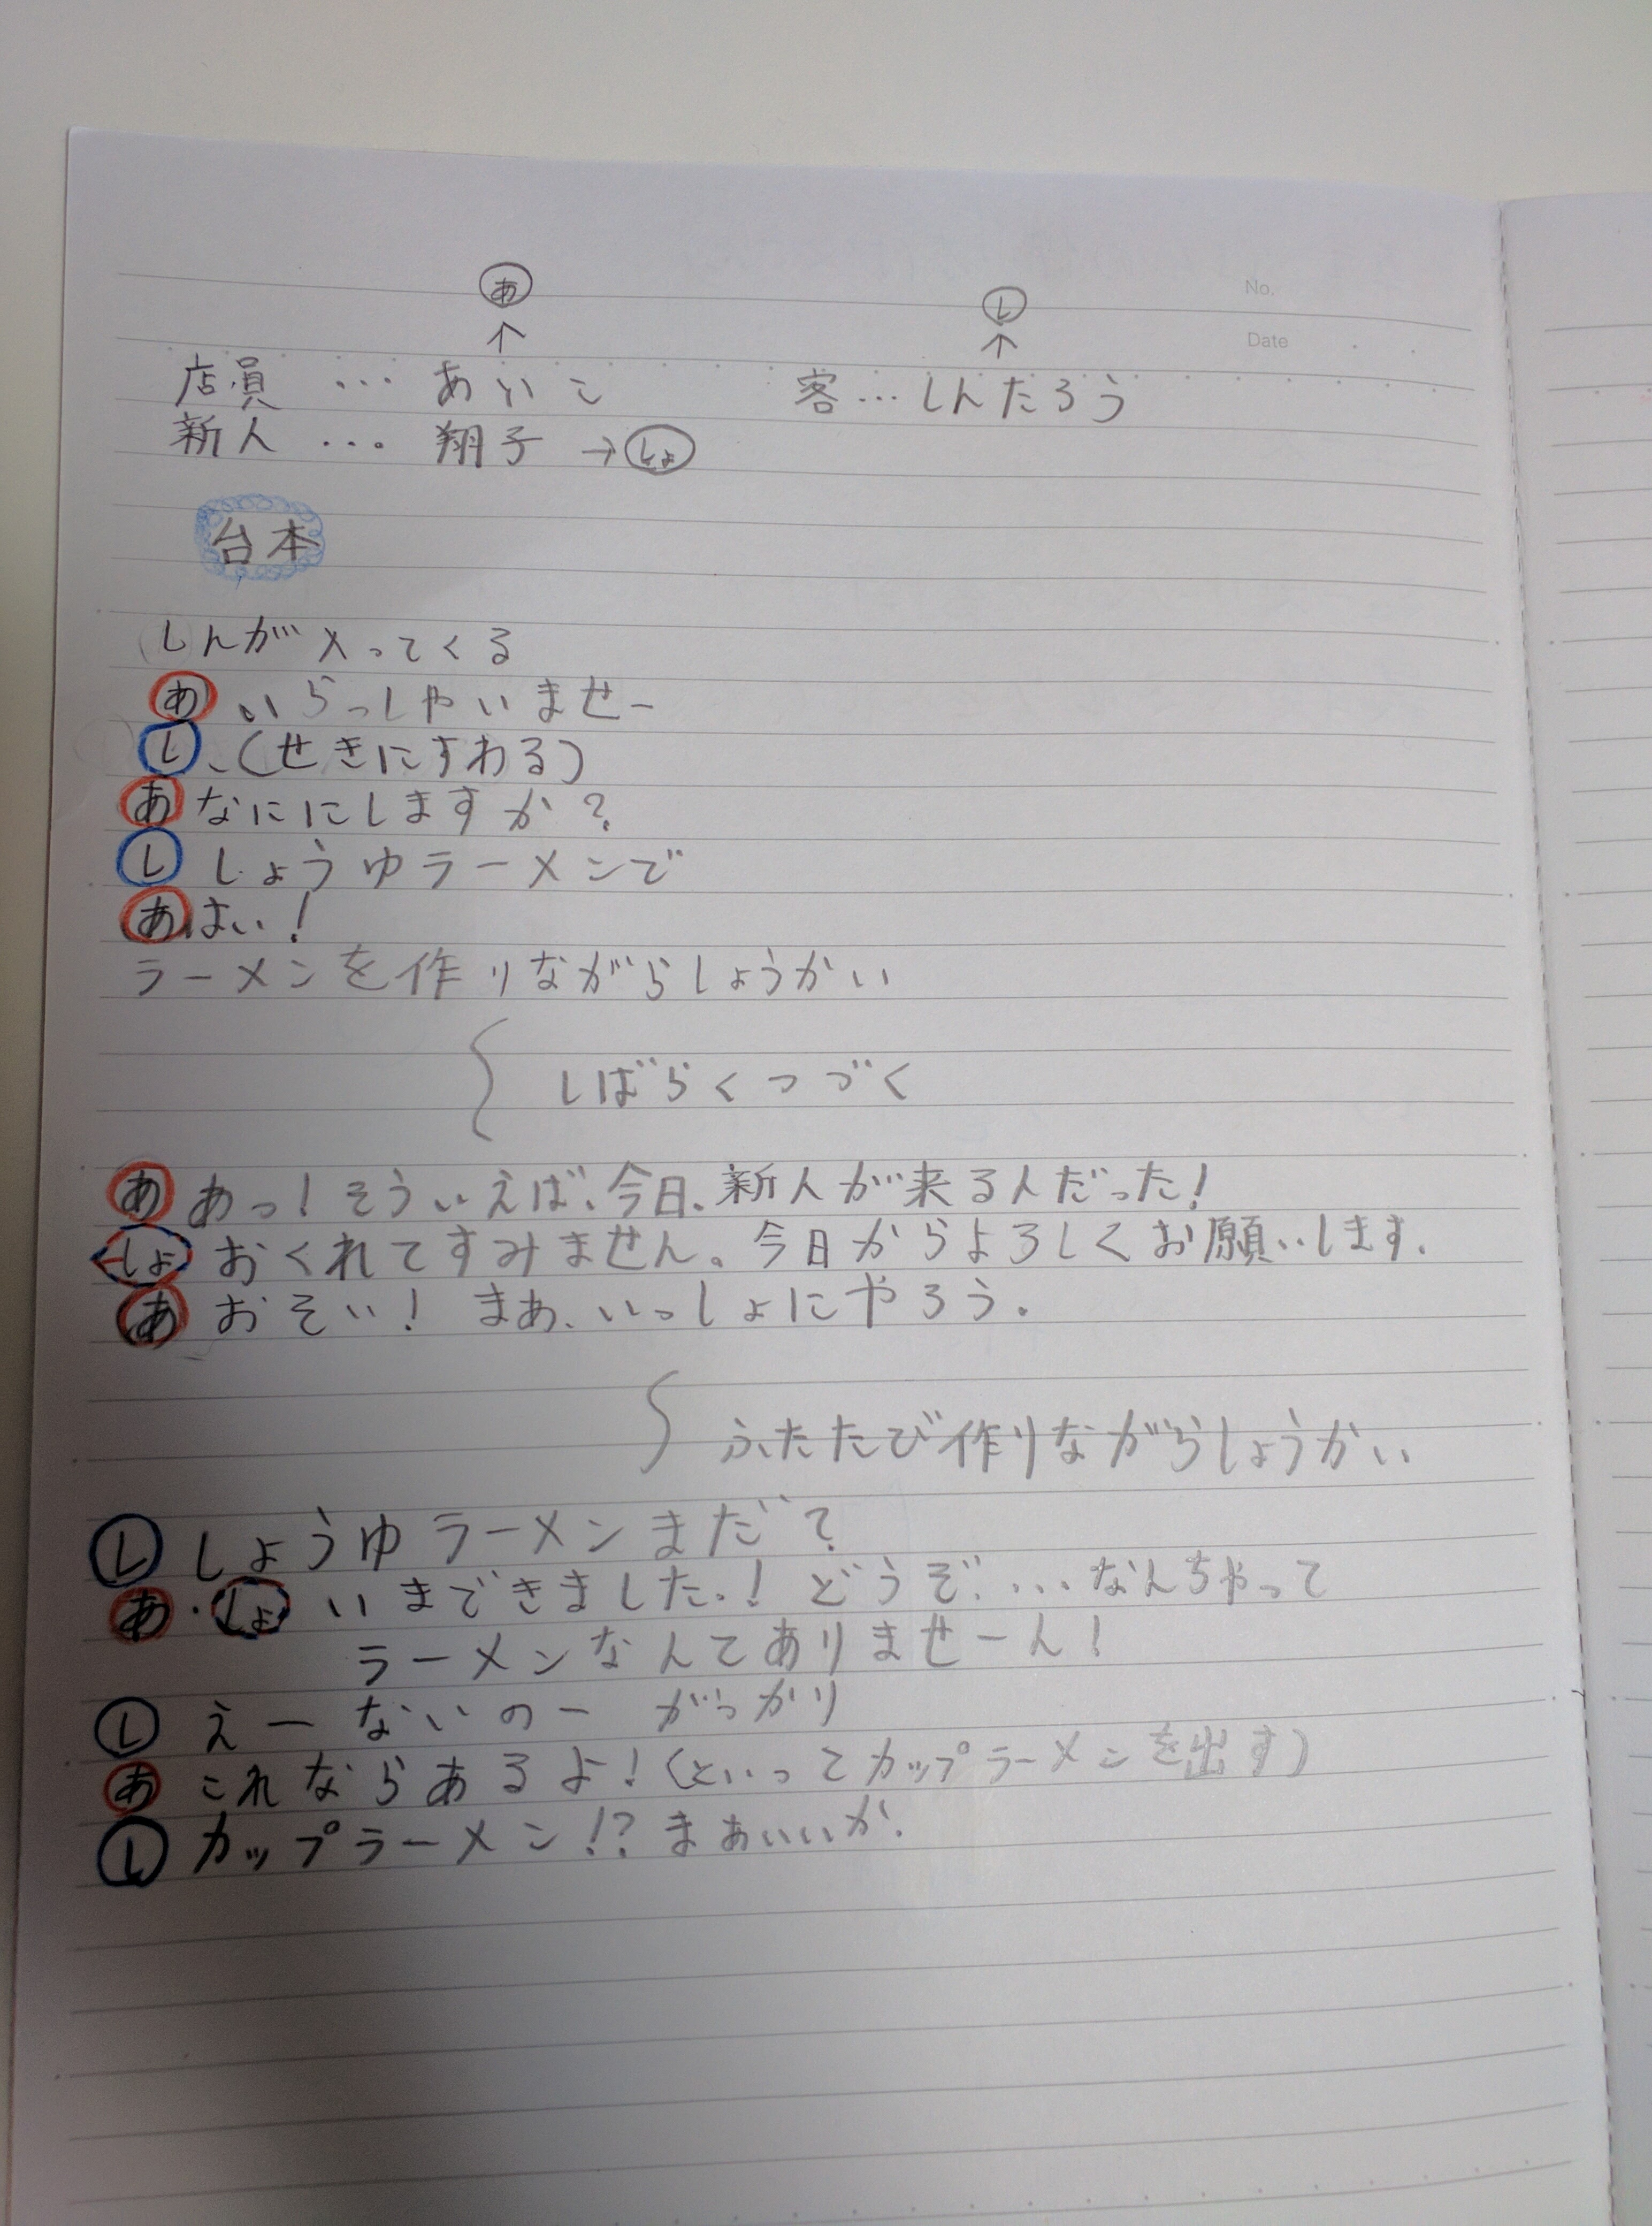 No.
Date
あ し
↑ ↑
店員 … あいこ 客…しんたろう
新人 … 翔子 →しょ
台本
しんが入ってくる
あ いらっしゃいませー
し、(せきにすわる)
あ なににしますか?
し しょうゆラーメンで
あ はい!
ラーメンを作りながらしょうかい
しばらくつづく
あ あっ!そういえば、今日、新人が来る人だった!
しょ おくれてすみません。今日からよろしくお願いします.
あ おそい! まあ、いっしょにやろう.
ふたたび作りながらしょうかい
し しょうゆラーメンまだ?
あ・しょ いまできました.!どうぞ.…なんちゃって
ラーメンなんてありませーん!
し えーないのー がっかり
あ これならあるよ!(といってカップラーメンを出す)
し カップラーメン!?まぁいいか.